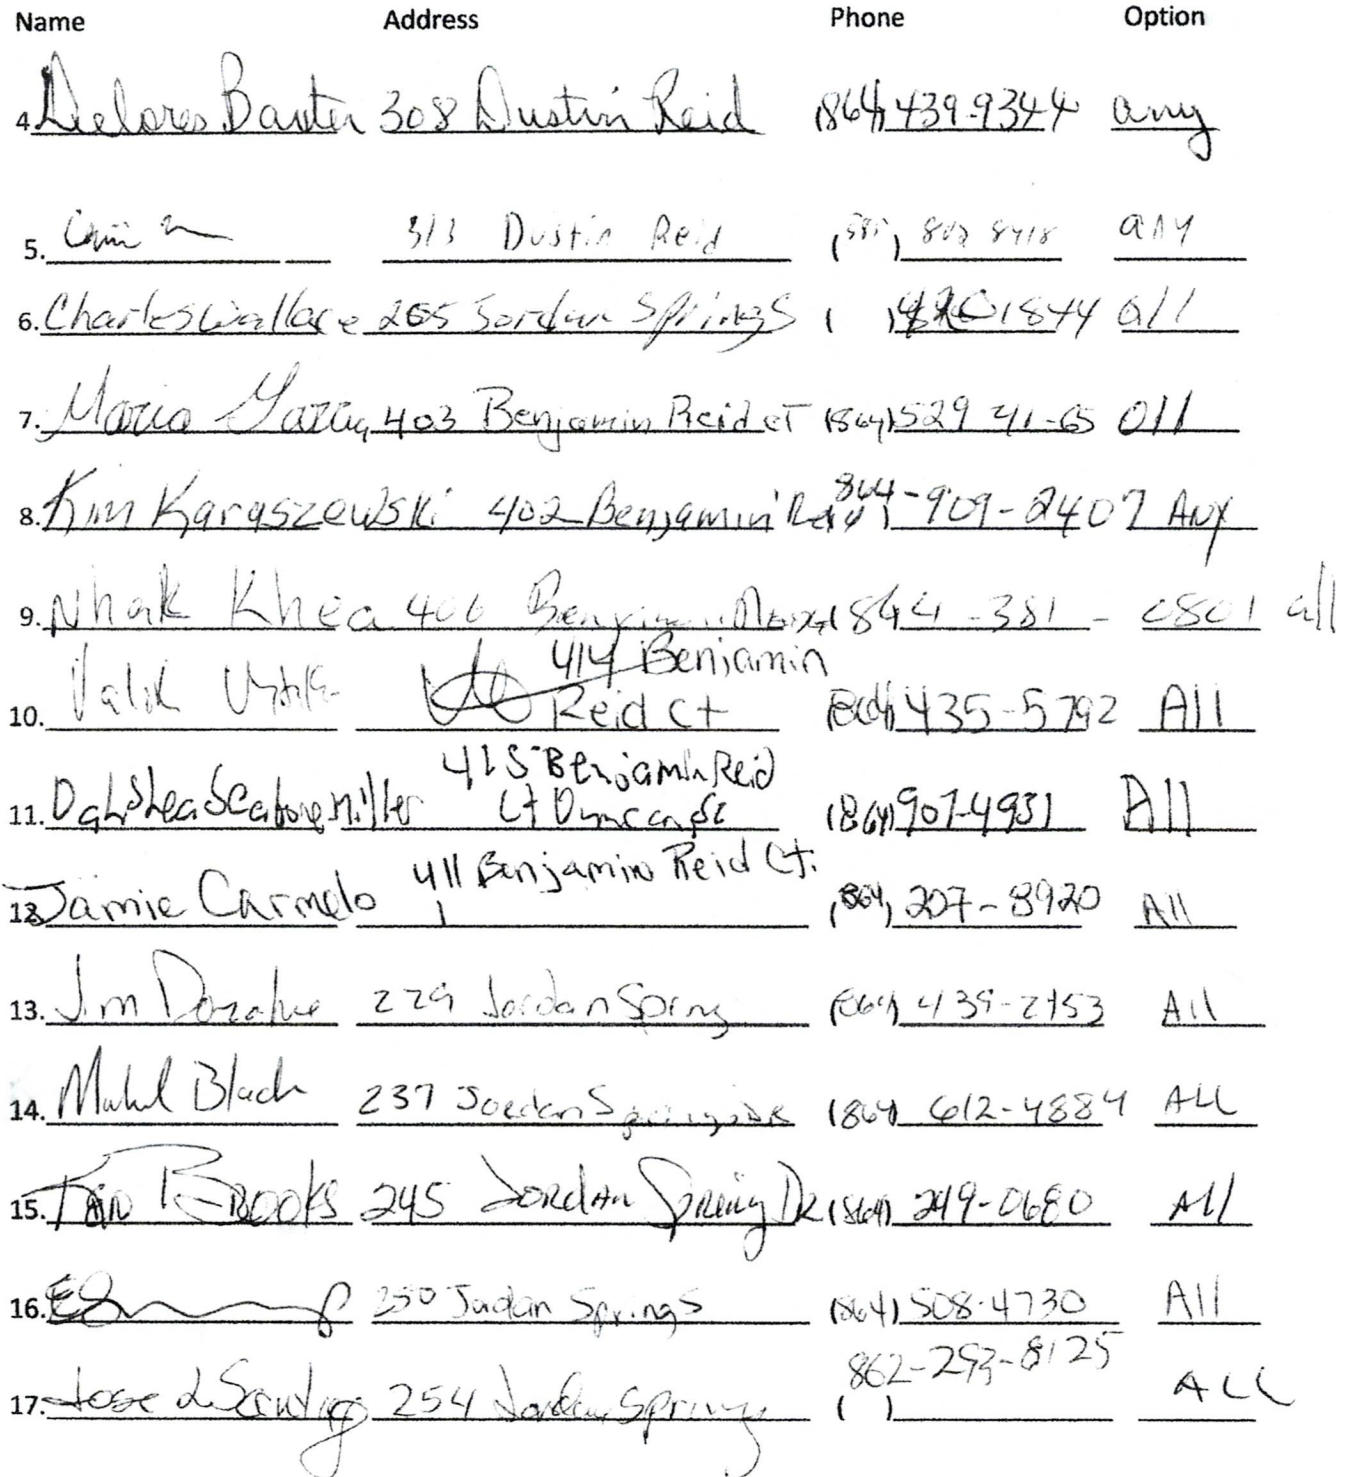 Name Address Phone Option
4. Delores Baxter 308 Dustin Reid (864) 439-9344 any
5. 313 Dustin Reid (585) 802 8418 any
6. Charles Wallace 265 Jordan Springs ( ) 1844 all
7. Maria Garay 403 Benjamin Reid CT (864) 529 41-65 all
8. Kim Karaszewski 402 Benjamin Reid 864-909-2407 Any
9. Nhak Khea 406 864-381-0801 all
10. Valik 414 Benjamin Reid Ct (864) 435-5792 All
11. 415 Benjamin Reid Ct Duncan SC (864) 907-4931 All
12. Jamie Carmelo 411 Benjamin Reid Ct. (864) 207-8920 All
13. Jim Donahue 229 Jordan Spring (864) 439-2153 All
14. Black 237 Jordan Springs DR (864) 612-4884 ALL
15. Brooks 245 Jordan Spring DR (864) 249-0680 All
16. 250 Jordan Springs (864) 508-4730 All
17. Jose L Santiago 254 Jordan Springs 862-293-8125 ( ) ALL